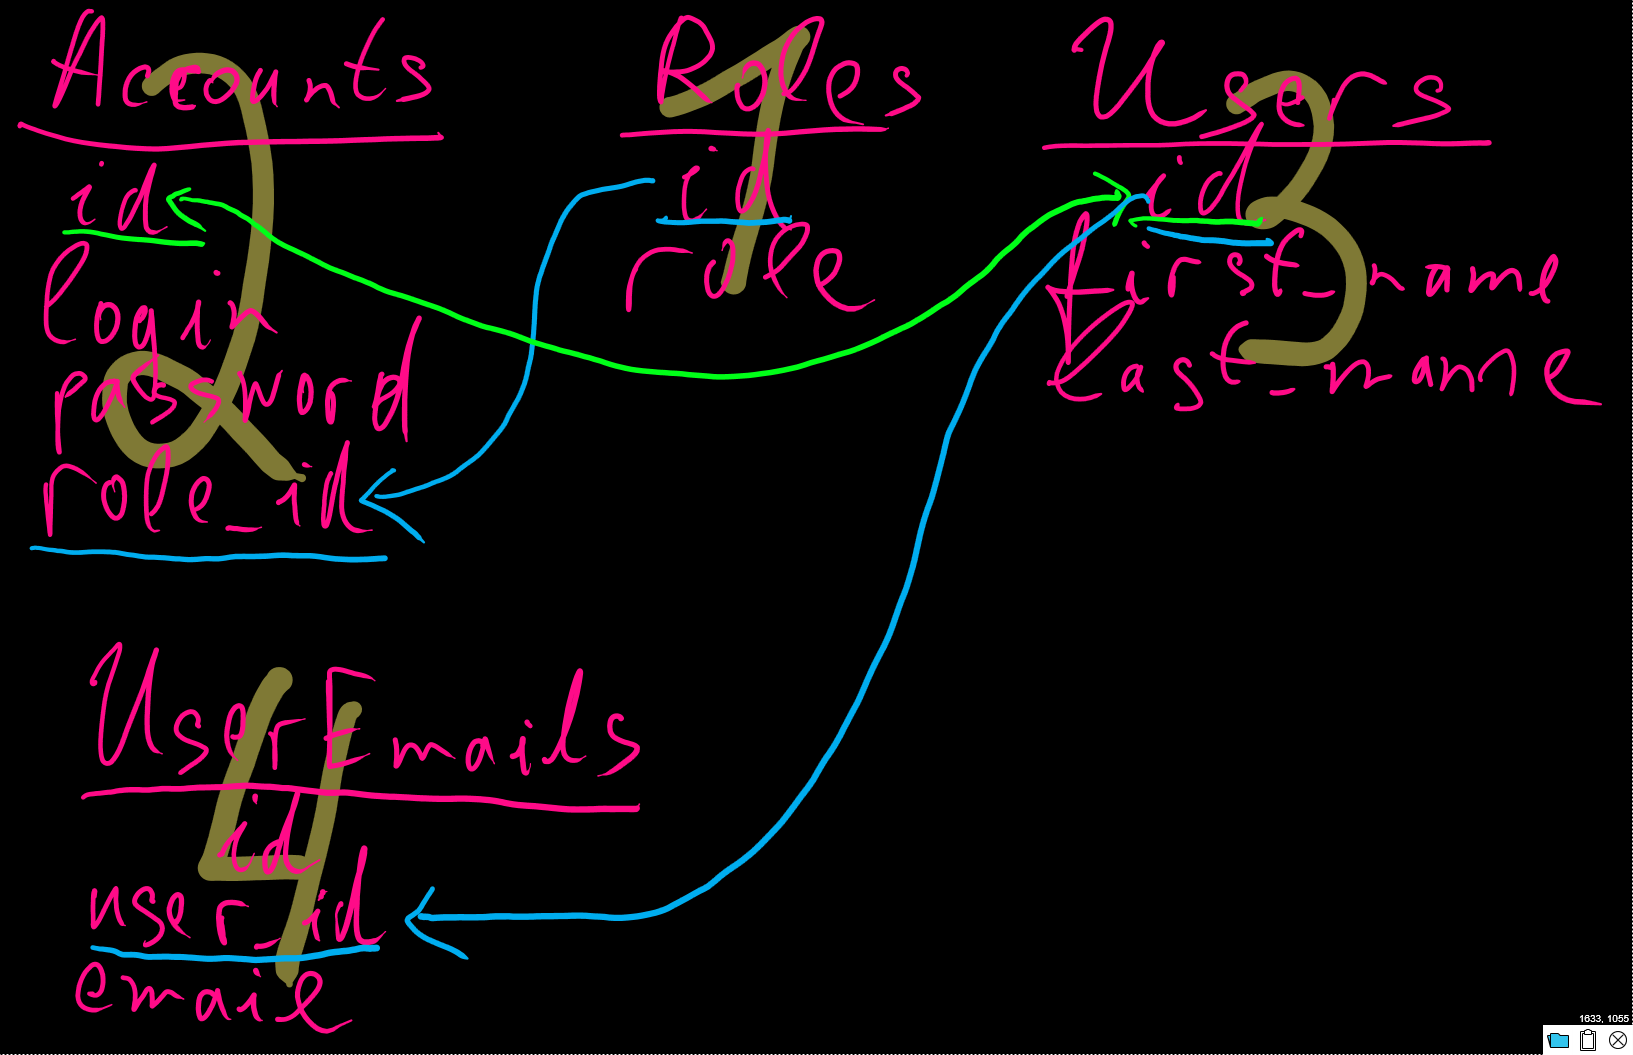 Accounts
id
login
password
role_id
2
Roles
id
role
1
Users
id
first_name
last_name
3
UserEmails
id
user_id
email
4
1633, 1055